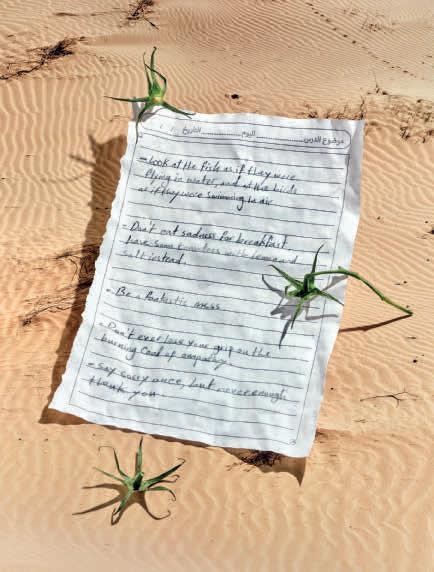 موضوع الدرس.................... اليوم.................... التاريخ / /
- Look at the fish as if they were
flying in water, and at the birds
as if they were swimming in air
- Don't eat sadness for breakfast
have some tomatoes with lemon and
salt instead.
- Be a fantastic mess
- Don't ever lose your grip on the
burning coal of empathy.
- say sorry once, but never enough
thank you